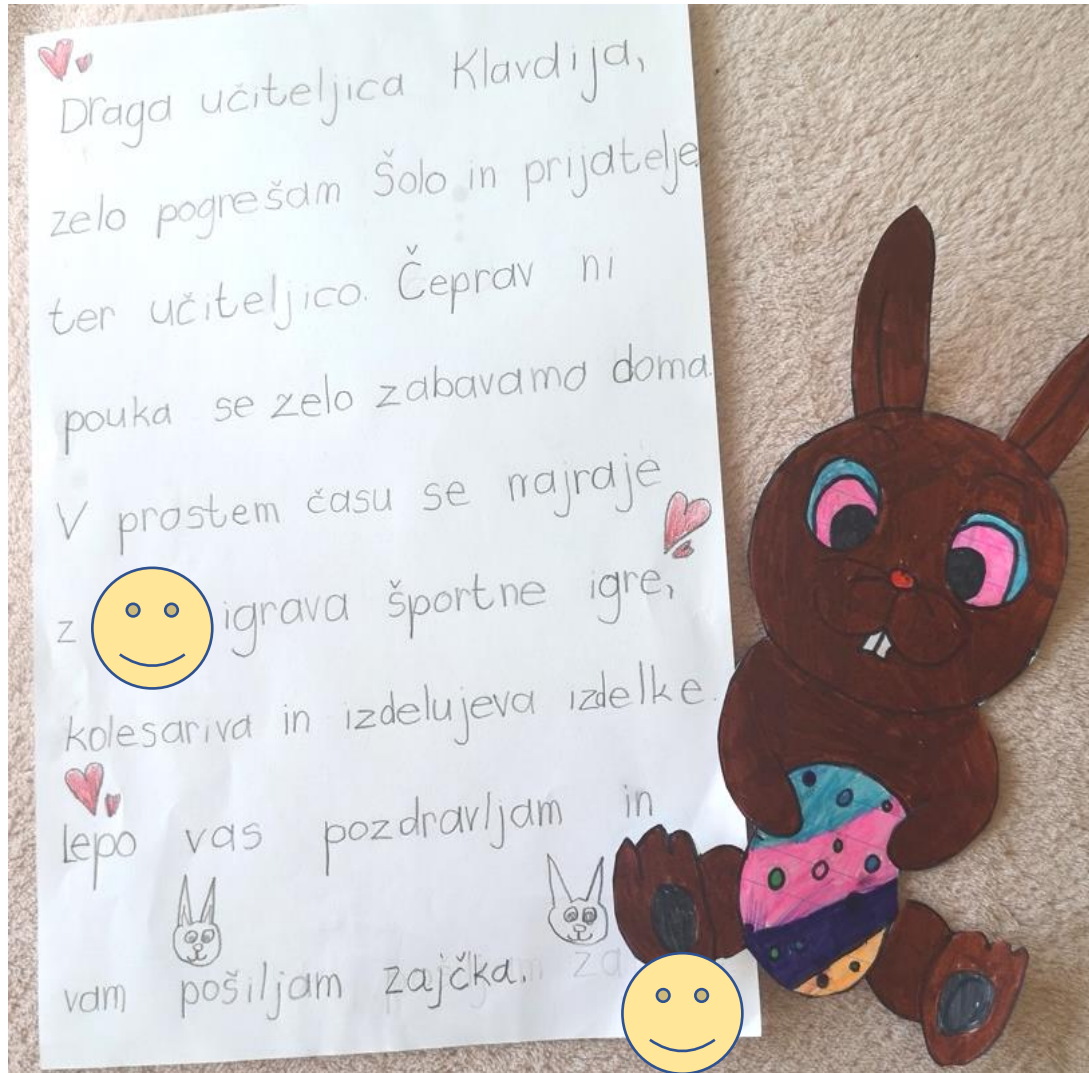 Draga učiteljica Klavdija,
zelo pogrešam Šolo in prijatelje
ter učiteljico. Čeprav ni
pouka se zelo zabavamo doma.
V prostem času se najraje
z igrava športne igre,
kolesariva in izdelujeva izdelke.
Lepo vas pozdravljam in
vam pošiljam zajčka.